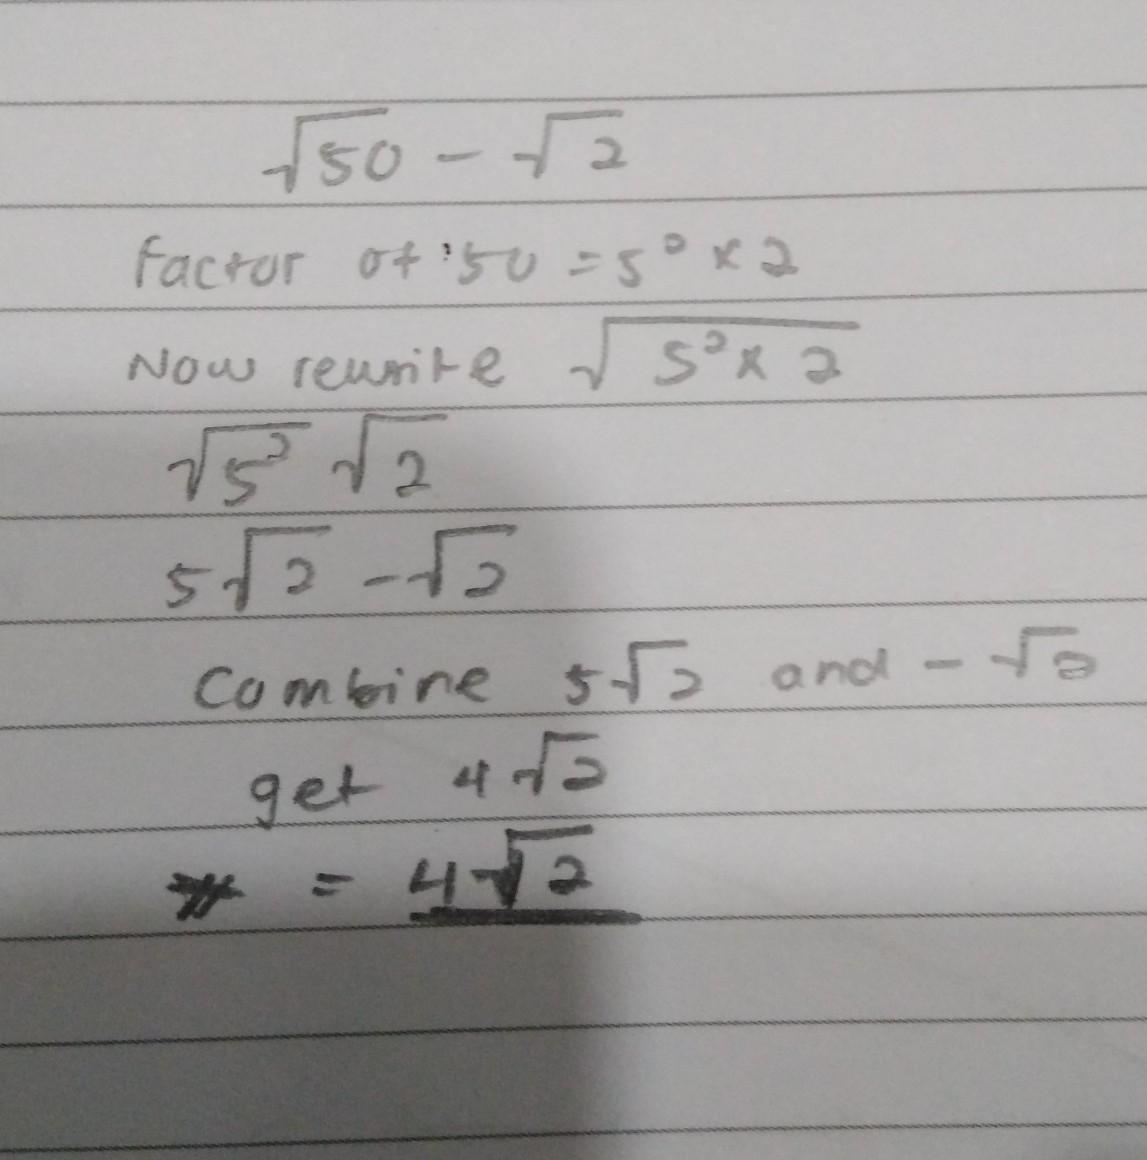 √50 - √2
Factor of 50 = 5² × 2
Now rewrite √5² × 2
√5² √2
5√2 - √2
Combine 5√2 and - √2
get 4√2
= 4√2